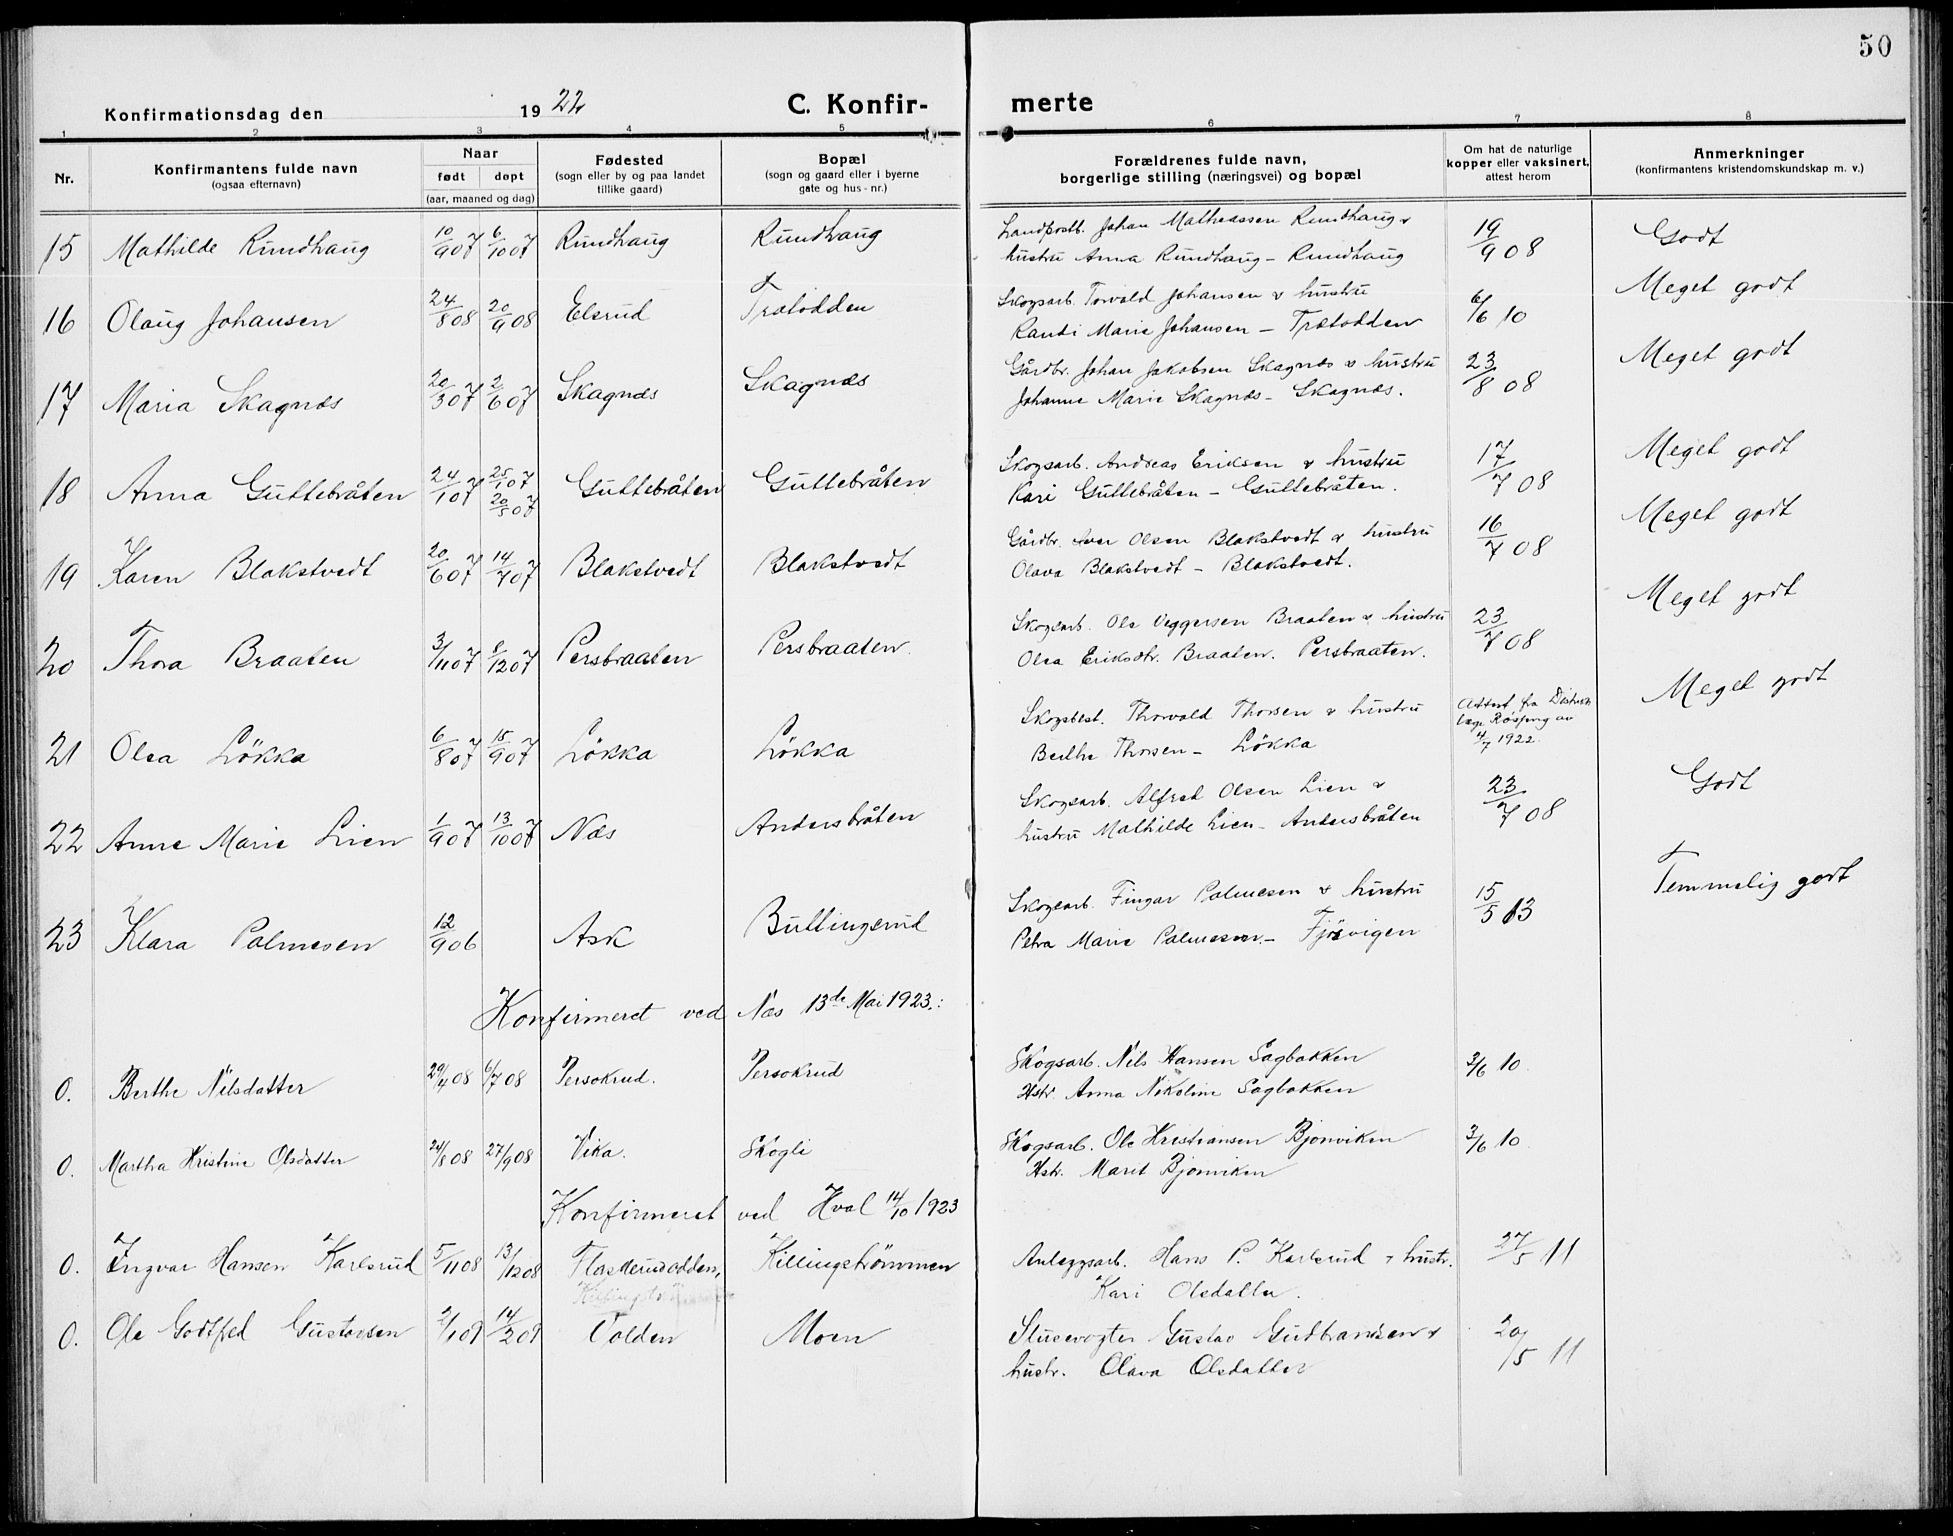 50
Konfirmationsdag den 1922 C. Konfir- merte
1 2 3 4 5 6 7 8
Nr.
Konfirmantens fulde navn
(ogsaa efternavn)
Naar
født døpt
(aar, maaned og dag)
Fødested
(sogn eller by og paa landet
tillike gaard)
Bopæl
(sogn og gaard eller i byerne
gate og hus-nr.)
Forældrenes fulde navn,
borgerlige stilling (næringsvei) og bopæl
Om hat de naturlige
kopper eller vaksinert,
attest herom
Anmerkninger
(konfirmantens kristendomskundskap m. v.)
15 Mathilde Rundhaug 10/9 07 6/10 07 Rundhaug Rundhaug Landpostb. Johan Mathiassen Rundhaug & 19/9 08 Godt
hustru Anna Rundhaug - Rundhaug
16 Olaug Johansen 24/8 08 20/9 08 Elsrud Tratodden Skogsarb. Torvald Johansen & hustru 6/6 10 Meget godt
Randi Marie Johansen - Trætodden
17 Maria Skagnæs 20/3 07 2/6 07 Skagnæs Skagnæs Gårdbr. Johan Jakobsen Skagnæs & hustru 23/8 08 Meget godt
Johanne Marie Skagnæs - Skagnæs.
18 Anna Guttebråten 24/1 07 25/1 07 Guttebråten Guttebråten Skogsarb. Andreas Eriksen & hustru 17/7 08 Meget godt
20/5 07 Kari Guttebråten - Guttebråten.
19 Karen Blakstvedt 20/6 07 14/7 07 Blakstvedt Blakstvedt Gårdbr. Iver Olsen Blakstvedt & hustru 16/7 08 Meget godt
Olava Blakstvedt - Blakstvedt.
20 Thora Braaten 3/11 07 8/12 07 Persbraaten Persbraaten. Skogsarb. Ole Veggersen Braaten & hustru 23/7 08 Meget godt
Olea Eriksdtr. Braaten. Persbraaten.
21 Olea Lökka 6/8 07 15/9 07 Lökka Lökka Skogsbest. Thorvald Thorsen & hustru Attest fra Distrikts Meget godt
Berthe Thorsen - Lökka læge Røsjørg av
4/7 1922.
22 Anne Marie Lien 1/9 07 13/10 07 Næs Andersbråten Skogsarb. Alfred Olsen Lien & 23/7 08 Godt
hustru Mathilde Lien - Andersbråten
23 Klara Palmesen 12/9 06 Ask Bullingsrud Skogsarb. Fingar Palmesen & hustru 15/5 13 Temmelig godt
Petra Marie Palmesen - Fjösvigen
Konfirmeret ved Næs 13de Mai 1923.:
0. Berthe Nilsdatter 29/4 08 6/7 08 Persokrud. Persokrud Skogsarb. Nils Hansen Sagbakken 3/6 10.
Hstr. Anna Nikoline Sagbakken
0. Martha Kristine Olsdatter 24/8 08 27/9 08 Vika. Skogli Skogsarb. Ole Kristiansen Bjonviken 3/6 10.
Hstr. Marit Bjonviken
Konfirmeret ved Hval 14/10 1923
0. Ingvar Hansen Karlsrud 5/11 08 13/12 08 Flaskerudodden, Killingströmmen Anleggsarb. Hans P. Karlsrud & hustr. 27/5 11
Kari Olsdatter.
0. Ole Godtfred Gustavsen 2/1 09 14/2 09 Volden Moen Slusevogter Gustav Gudbrandsen & 20/5 11
hustr. Olava Olsdatter